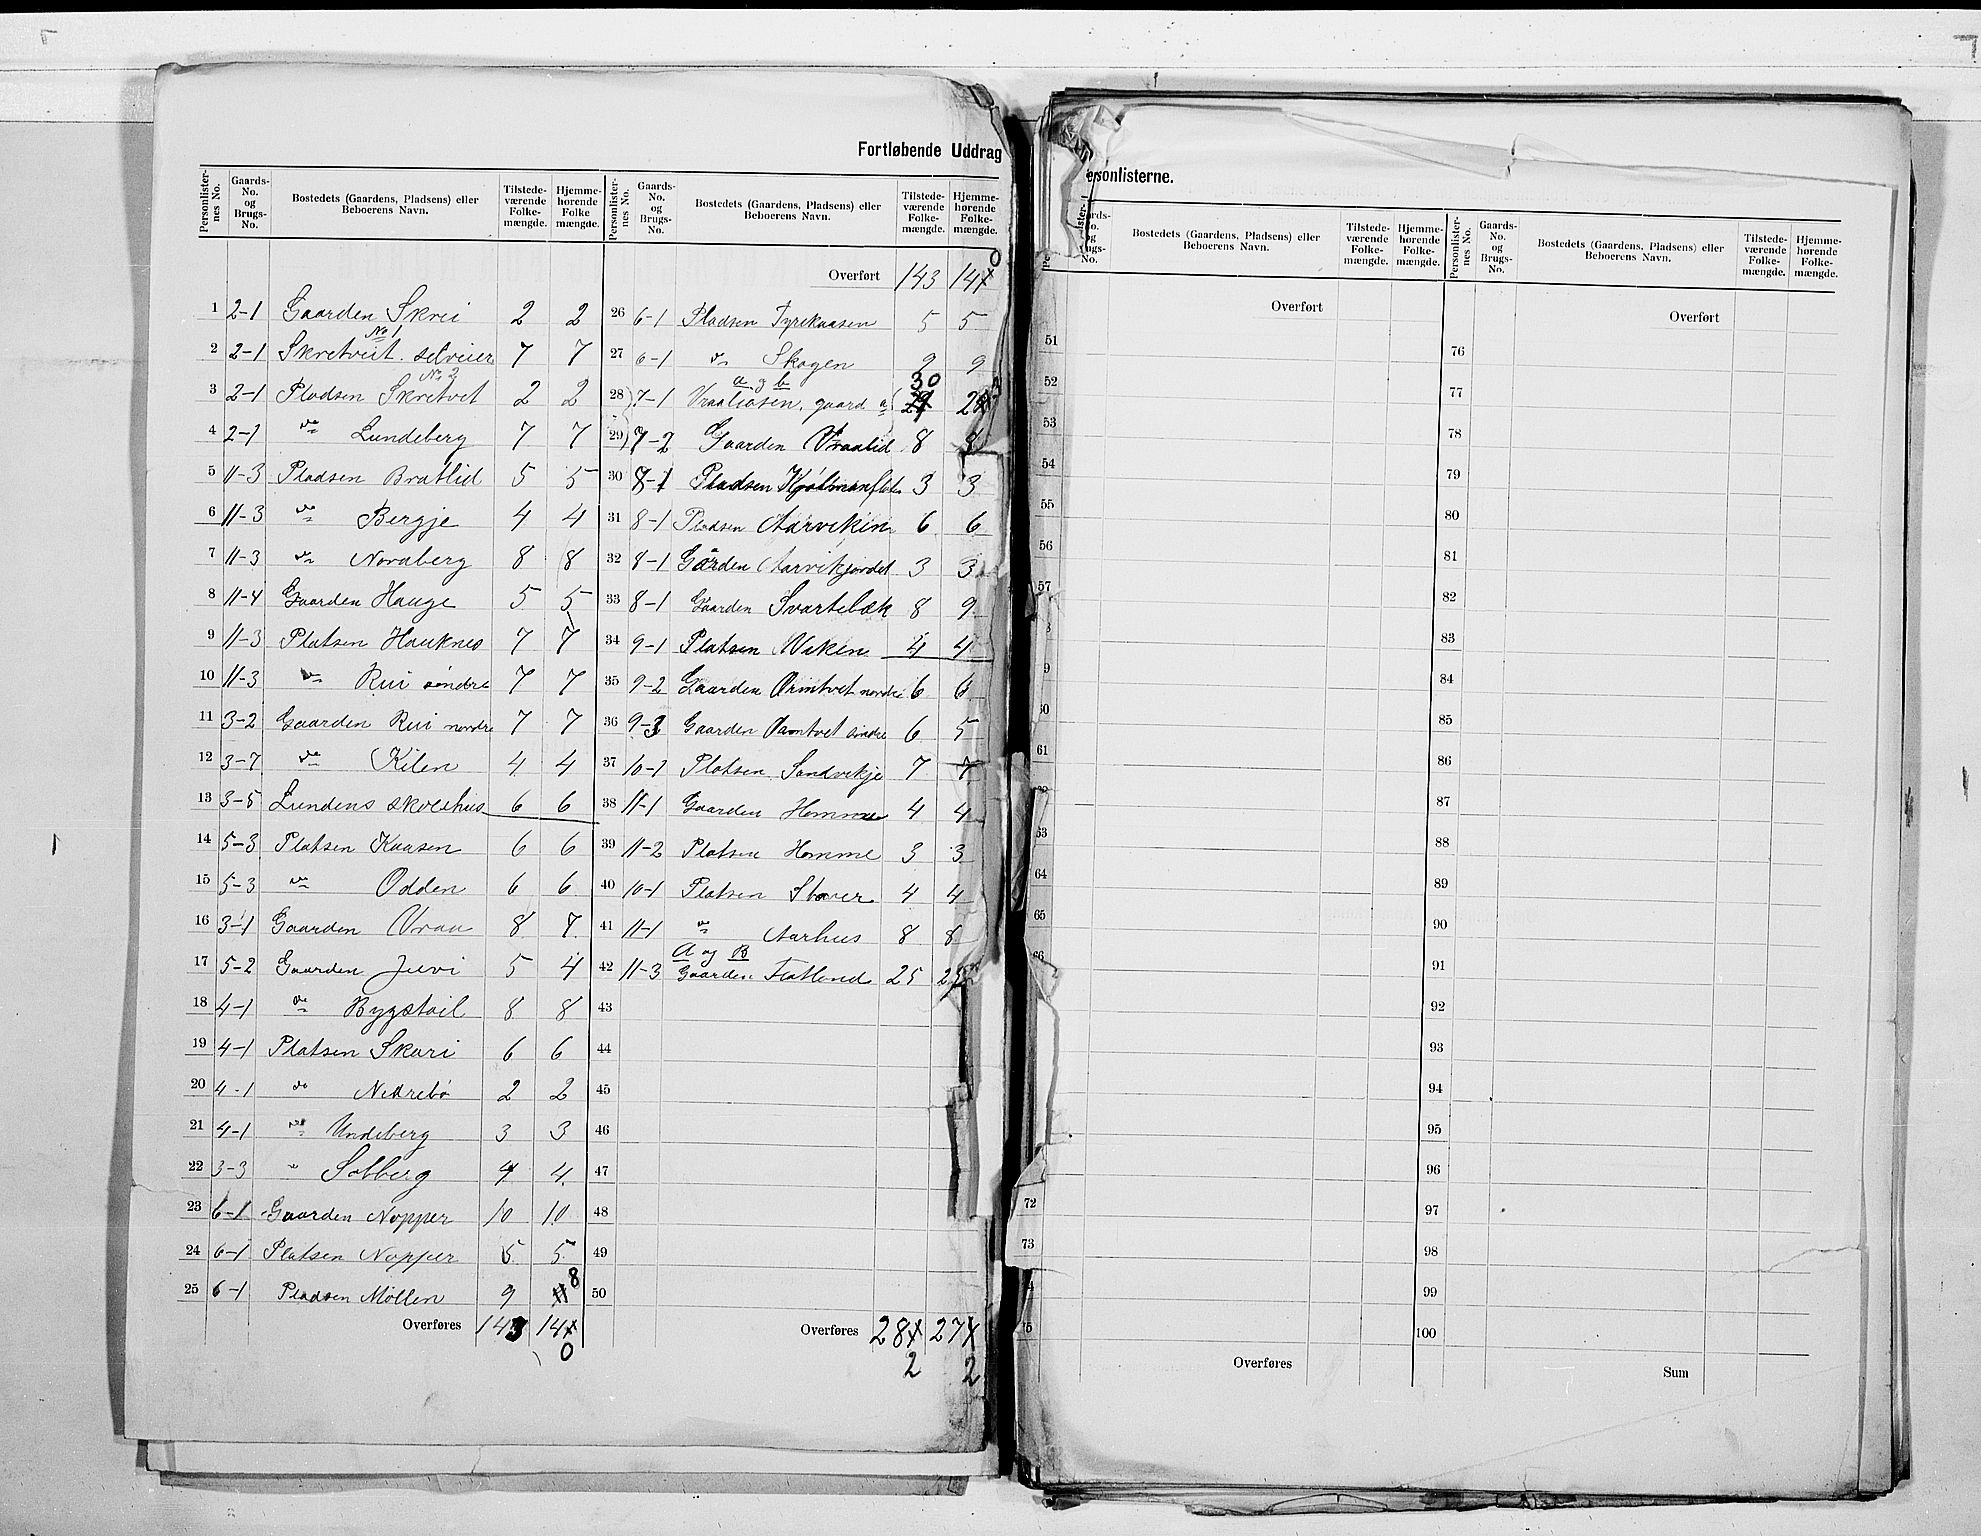 Fortløbende Uddrag
Personlister-nes No. Gaards-No. og Brugs-No. Bostedets (Gaardens, Pladsens) eller Beboerens Navn. Tilstede-værende Folke-mængde. Hjemme-hørende Folke mængde.
1 2-1 Gaarden Skrei 2 2
No 1
2 2-1 Skretveit selveier 7 7
No 2
3 2-1 Pladsen Skretvet 2 2
4 2-1 do Lundeberg 7 7
5 11-3 Pladsen Bratlid 5 5
6 11-3 do Bergje 4 4
7 11-3 do Noraberg 8 8
8 11-4 Gaarden Hauge 5 5
9 11-3 Platsen Hauknes 7 7
10 11-3 do Rui søndre 7 7
11 3-2 Gaarden Rui nordre 7 7
12 3-7 do Kilen 4 4
13 3-5 Lundens skolehus 6 6
14 5-3 Platsen Kaasen 6 6
15 5-3 do Odden 6 6
16 3-1 Gaarden Vraa 8 7
17 5-2 Gaarden Juvi 5 4
18 4-1 do Bygstøil 8 8
19 4-1 Platsen Skori 6 6
20 4-1 do Nedrebø 2 2
21 4-1 do Undeberg 3 3
22 3-3 " Solberg 4 4
23 6-1 Gaarden Napper 10 10
24 6-1 Platsen Napper 5 5
25 6-1 Pladsen Möllen 9 8
Overføres 143 14
0
Personlister-nes No. Gaards-No. og Brugs-No. Bostedets (Gaardens, Pladsens) eller Beboerens Navn. Tilstede-værende Folke-mængde. Hjemme-hørende Folke-mængde.
0
Overført 143 14
26 6-1 Pladsen Tyrekaasen 5 5
27 6-1 do Skogen 9 9
a og b 30
28 7-1 Vraaliosen, gaard a 2
29 7-2 Gaarden Vraalid 8 8
30 8-1 Pladsen 3 3
31 8-1 Pladsen Aarvikin 6 6
32 8-1 Gården Aarvikjordet 3 3
33 8-1 Gaarden Svartebæk 8 9
34 9-1 Platsen Viken 4 4
35 9-2 Gaarden Ormtvet nordre 6 6
36 9-3 Gaarden Ormtvet søndre 6 5
37 10-1 Platsen Sandvikje 7 7
38 11-1 Gaarden Homme 4 4
39 11-2 Platsen Homme 3 3
40 10-1 Platsen Staver 4 4
41 11-1 do Aarhus 8 8
A og B
42 11-3 Gaarden Flatland 25 25
43
44
45
46
47
48
49
50
Overføres 28 27
2 2
ersonlisterne.
Gaards-No. og Brugs-No. Bostedets (Gaardens, Pladsens) eller Beboerens Navn. Tilstede-værende Folke-mængde. Hjemme-hørende Folke-mængde.
Overført
51
52
53
54
55
56
57
60
61
63
64
65
66
72
73
Overføres
Personlister-nes No. Gaards-No. og Brugs-No. Bostedets (Gaardens, Pladsens) eller Beboerens Navn. Tilstede-værende Folke-mængde. Hjemme-hørende Folke-mængde.
Overført
76
77
78
79
80
81
82
83
84
85
86
87
88
89
90
91
92
93
94
95
96
97
98
99
100
Sum